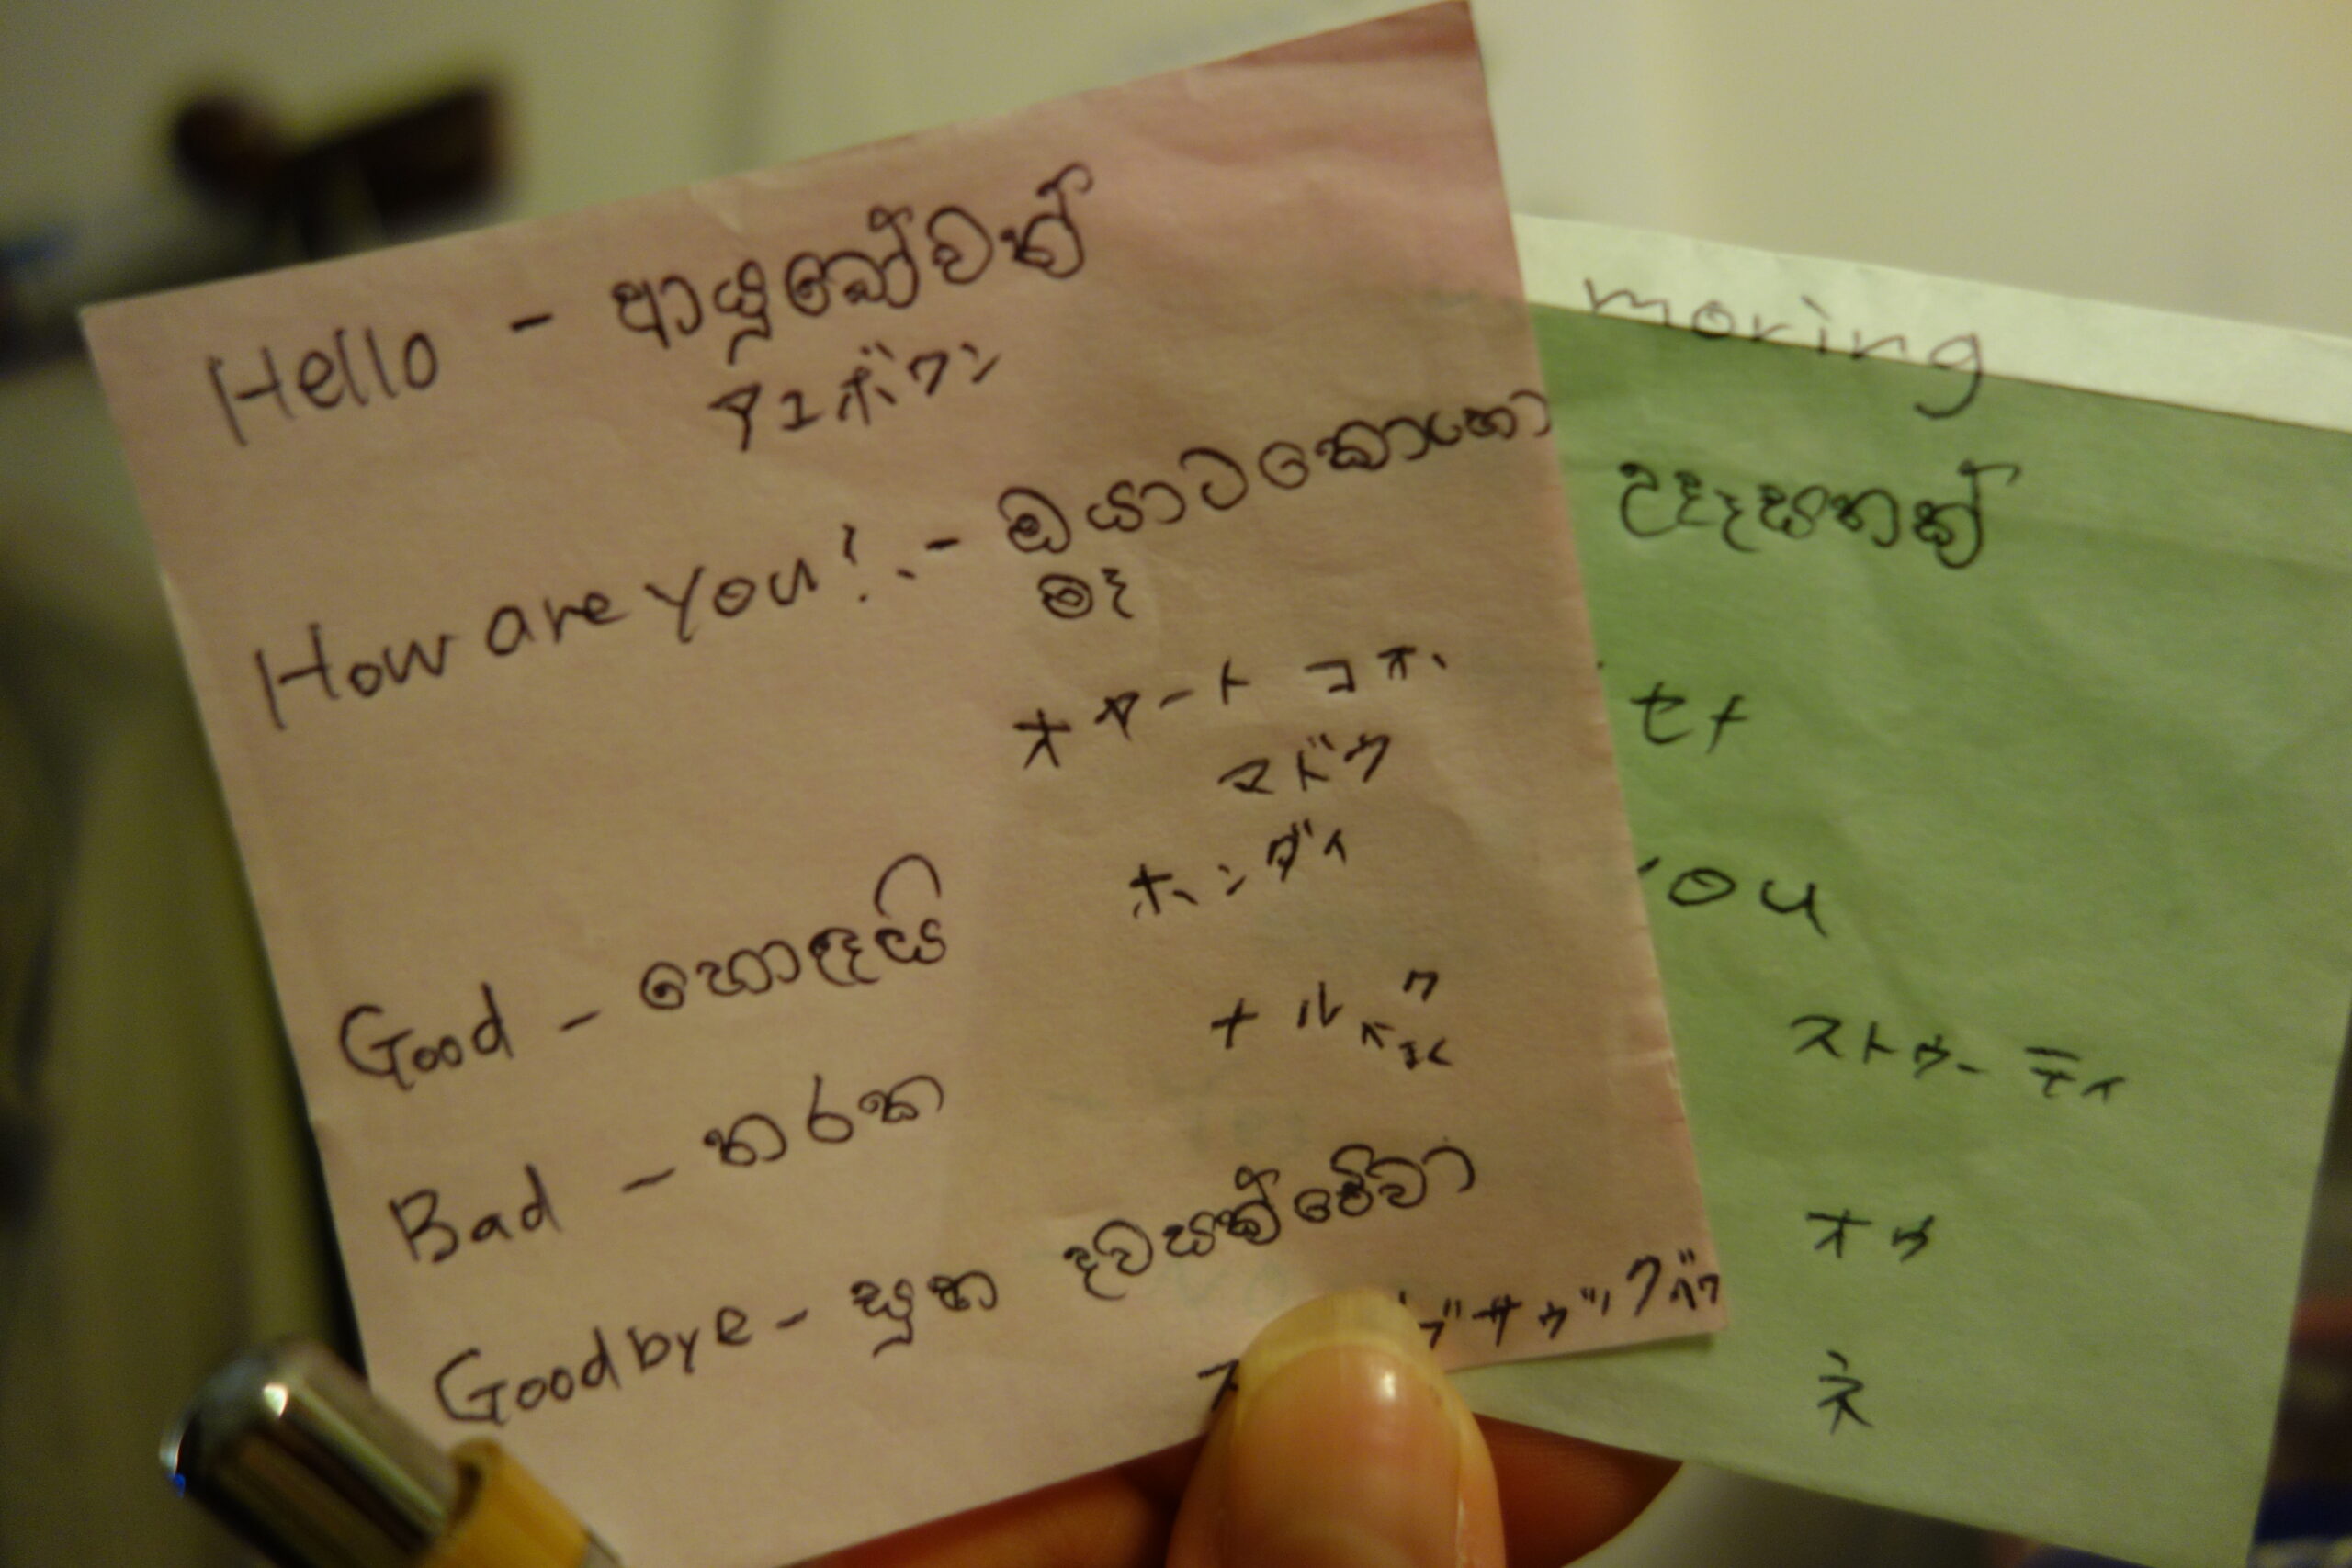 Hello - ආයුබෝවන්
アユボワン
How are you? - ඔයාටකොහො
මද
オヤート コホ
マドウ
ホンダイ
Good - හොඳයි
ナルク
Bad - නරක
Goodbye - සුභ දවසක්වේවා
ブサウ゛ックバワ
moring
උදෑසනක්
セナ
you
ストゥーティ
オウ
ネ